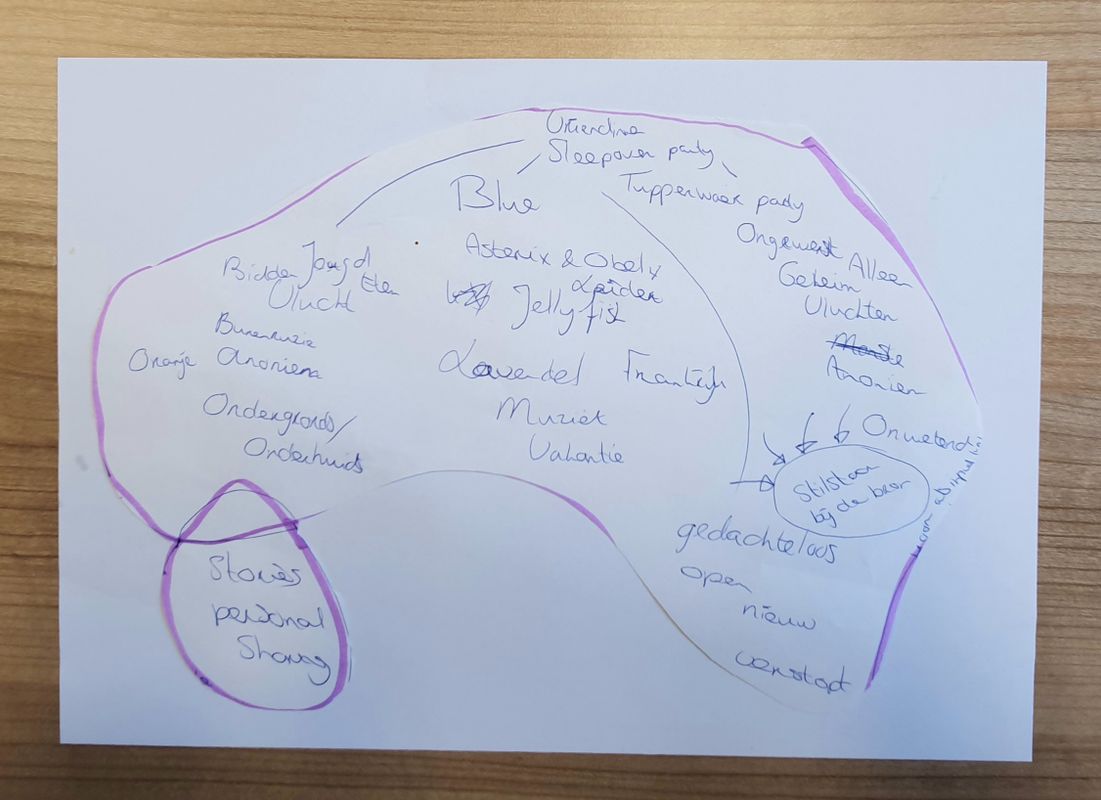 Sleepover party
Tupperwaer party
Blue
Ongewenst Alleen
Geheim
Vluchten
Anoniem
Onwetend
Asterix & Obelix
Leider
Jelly fish
Jeugd
Bidden Eten
Vlucht
Burenruzie
Oranje Anoniem
Lavendel Frankrijk
Muziek
Vakantie
Ondergronds/
Onderhuids
Stilstaan
bij de
gedachteloos
open
nieuw
verstopt
Stories
personal
Sharing